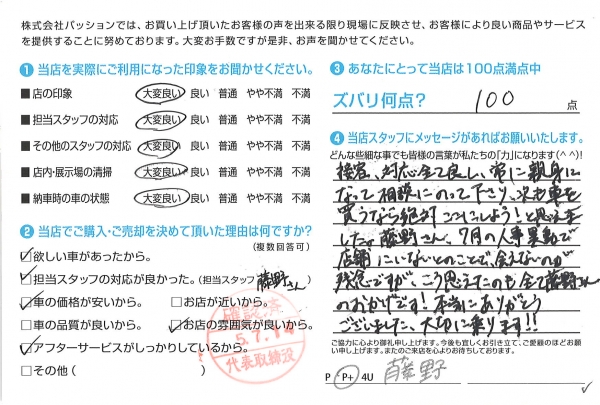 株式会社パッションでは、お買い上げ頂いたお客様の声を出来る限り現場に反映させ、お客様により良い商品やサービス
を提供することに努めております。大変お手数ですが是非、お声を聞かせてください。
❶当店を実際にご利用になった印象をお聞かせください。
■店の印象 大変良い 良い 普通 やや不満 不満
■担当スタッフの対応 大変良い 良い 普通 やや不満 不満
■その他のスタッフの対応 大変良い 良い 普通 やや不満 不満
■店内・展示場の清掃 大変良い 良い 普通 やや不満 不満
■納車時の車の状態 大変良い 良い 普通 やや不満 不満
❷当店でご購入・ご売却を決めて頂いた理由は何ですか?
(複数回答可)
☑欲しい車があったから。
☑担当スタッフの対応が良かった。(担当スタッフ 藤野さん
☑車の価格が安いから。 □お店が近いから。
□車の品質が良いから。 ☑お店の雰囲気が良いから。
☑アフターサービスがしっかりしているから。
□その他(
)
確認済
5.7.1
代表取締役
❸あなたにとって当店は100点満点中
ズバリ何点? 100 点
❹当店スタッフにメッセージがあればお願いいたします。
どんな些細な事でも皆様の言葉が私たちの「力」になります(^^)!
接客、対応全て良し、常に親身に
なって相談にのって下さり、次も車を
買うなら絶対ここにしよう!と思えま
した。藤野さん、7月の人事異動で
店舗にいないとのことで、会えないのが
残念ですが、こう思えたのも全て藤野さん
のおかげです!本当にありがとう
ございました、大切に乗ります!!
ご協力に心より御礼申し上げます。今後も宜しくお引き立て、ご愛顧のほどお願
い申し上げます。またのご来店を心よりお待ちしております。
P P+ 4U 藤野